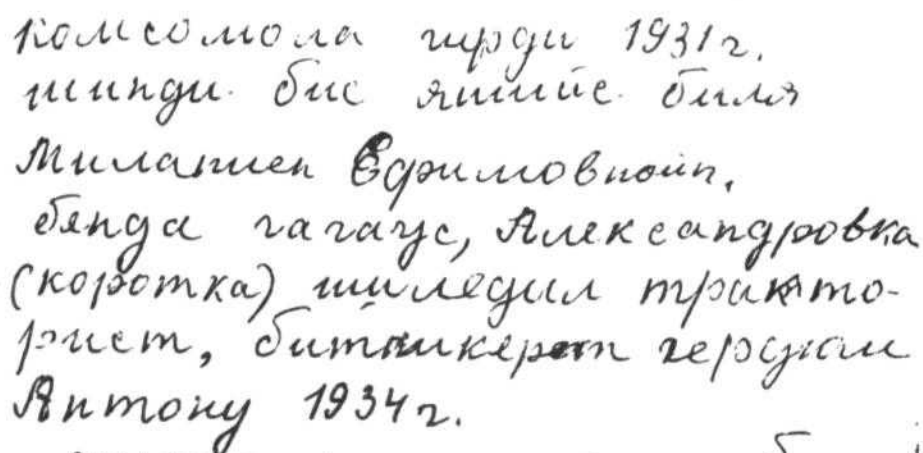 комсомола гирди 1931г.
шинди бис яшийс биля
Миланиен Ефимовноин.
бянда гагаус, Александровка
(коротка) ишледил тракто-
рист, битки герджи
Антону 1934г.